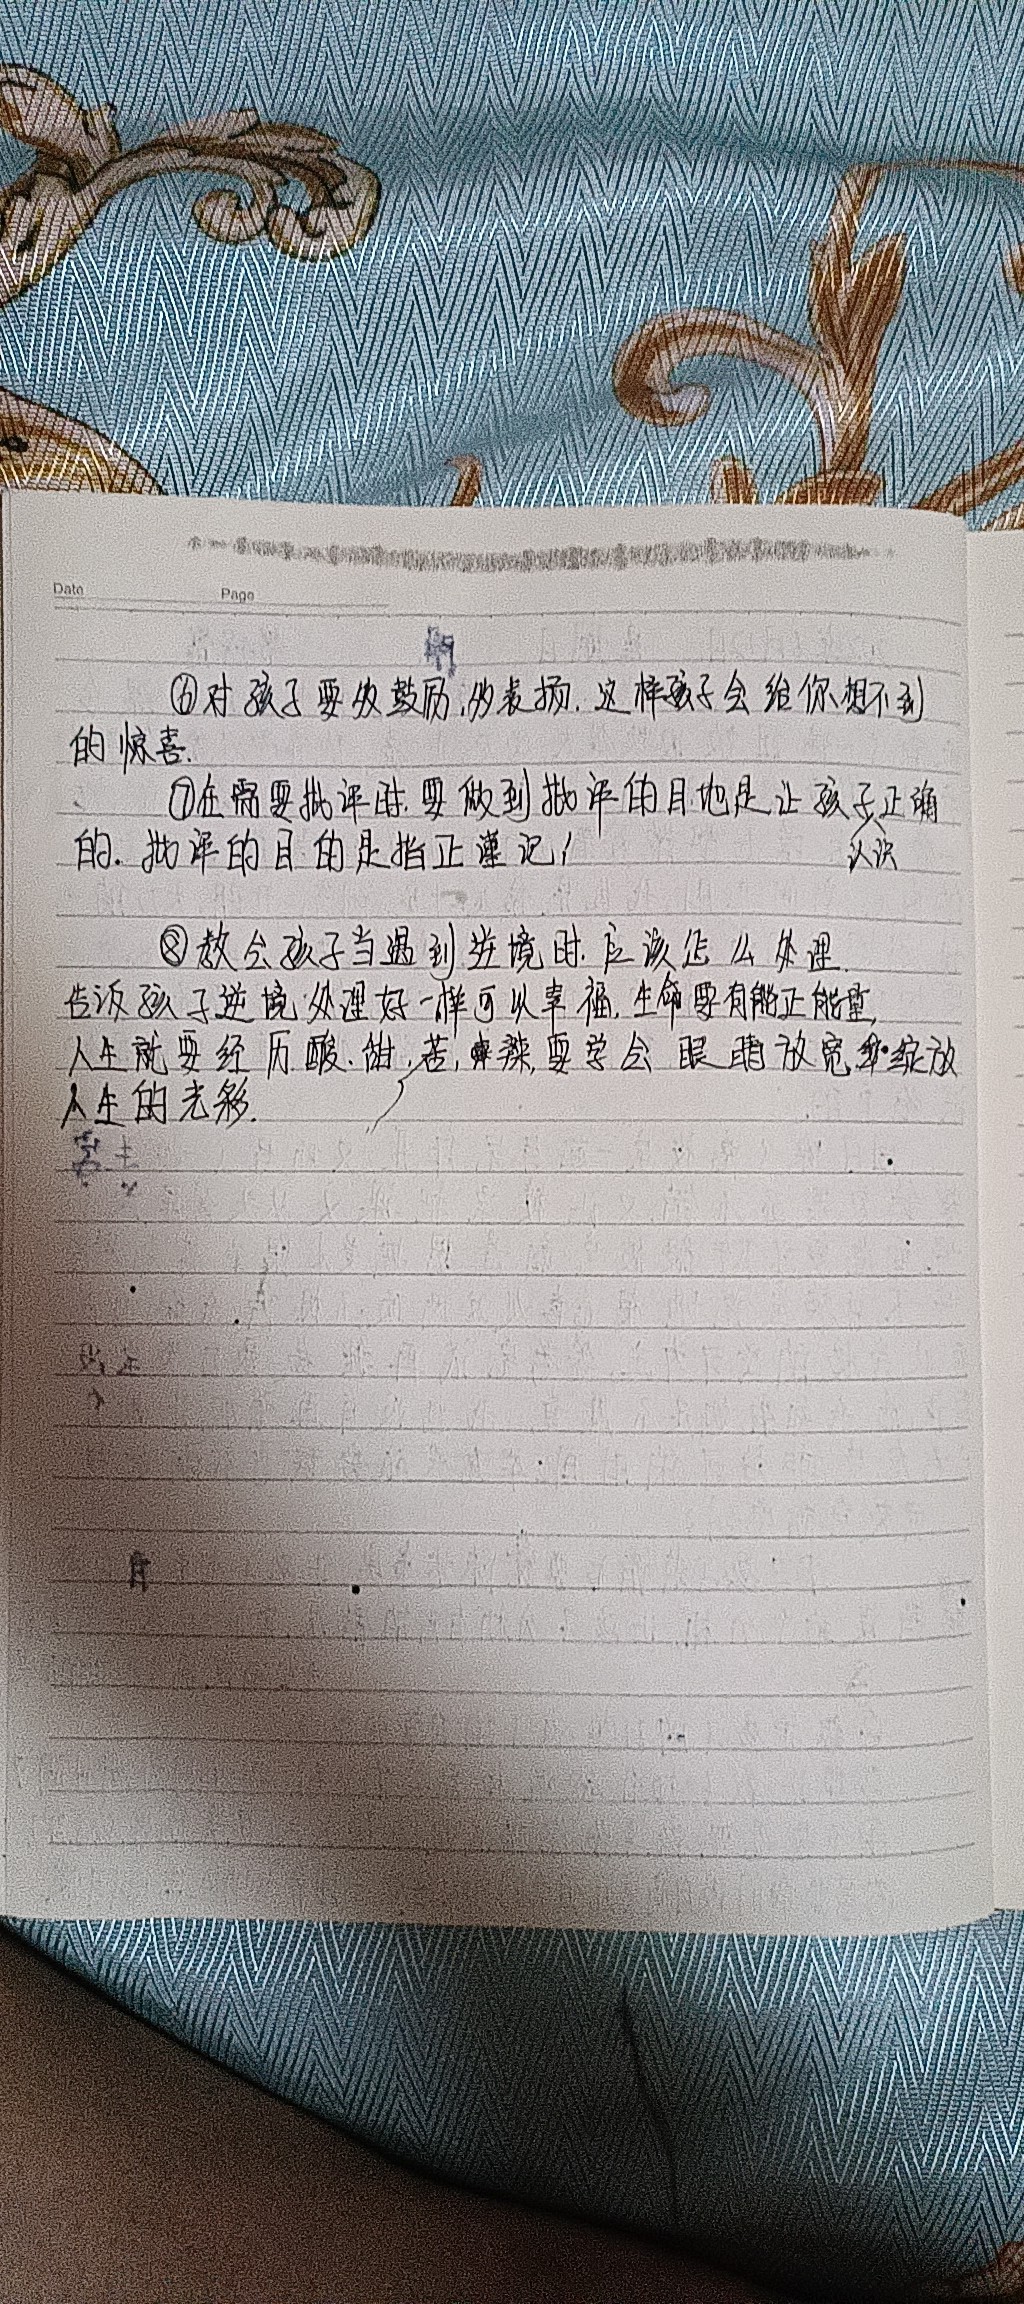 Date Page
⑥对孩子要多鼓励,多表扬.这样孩子会给你想不到
的惊喜.
⑦在需要批评时.要做到批评的目地是让孩子正确
认识
的.批评的目的是指正谨记!
⑧教会孩子当遇到逆境时.应该怎么处理.
告诉孩子逆境处理好一样可以幸福.生命要有能正能量,
人生就要经历酸.甜,苦,辣,要学会眼睛放宽.绽放
人生的光彩.